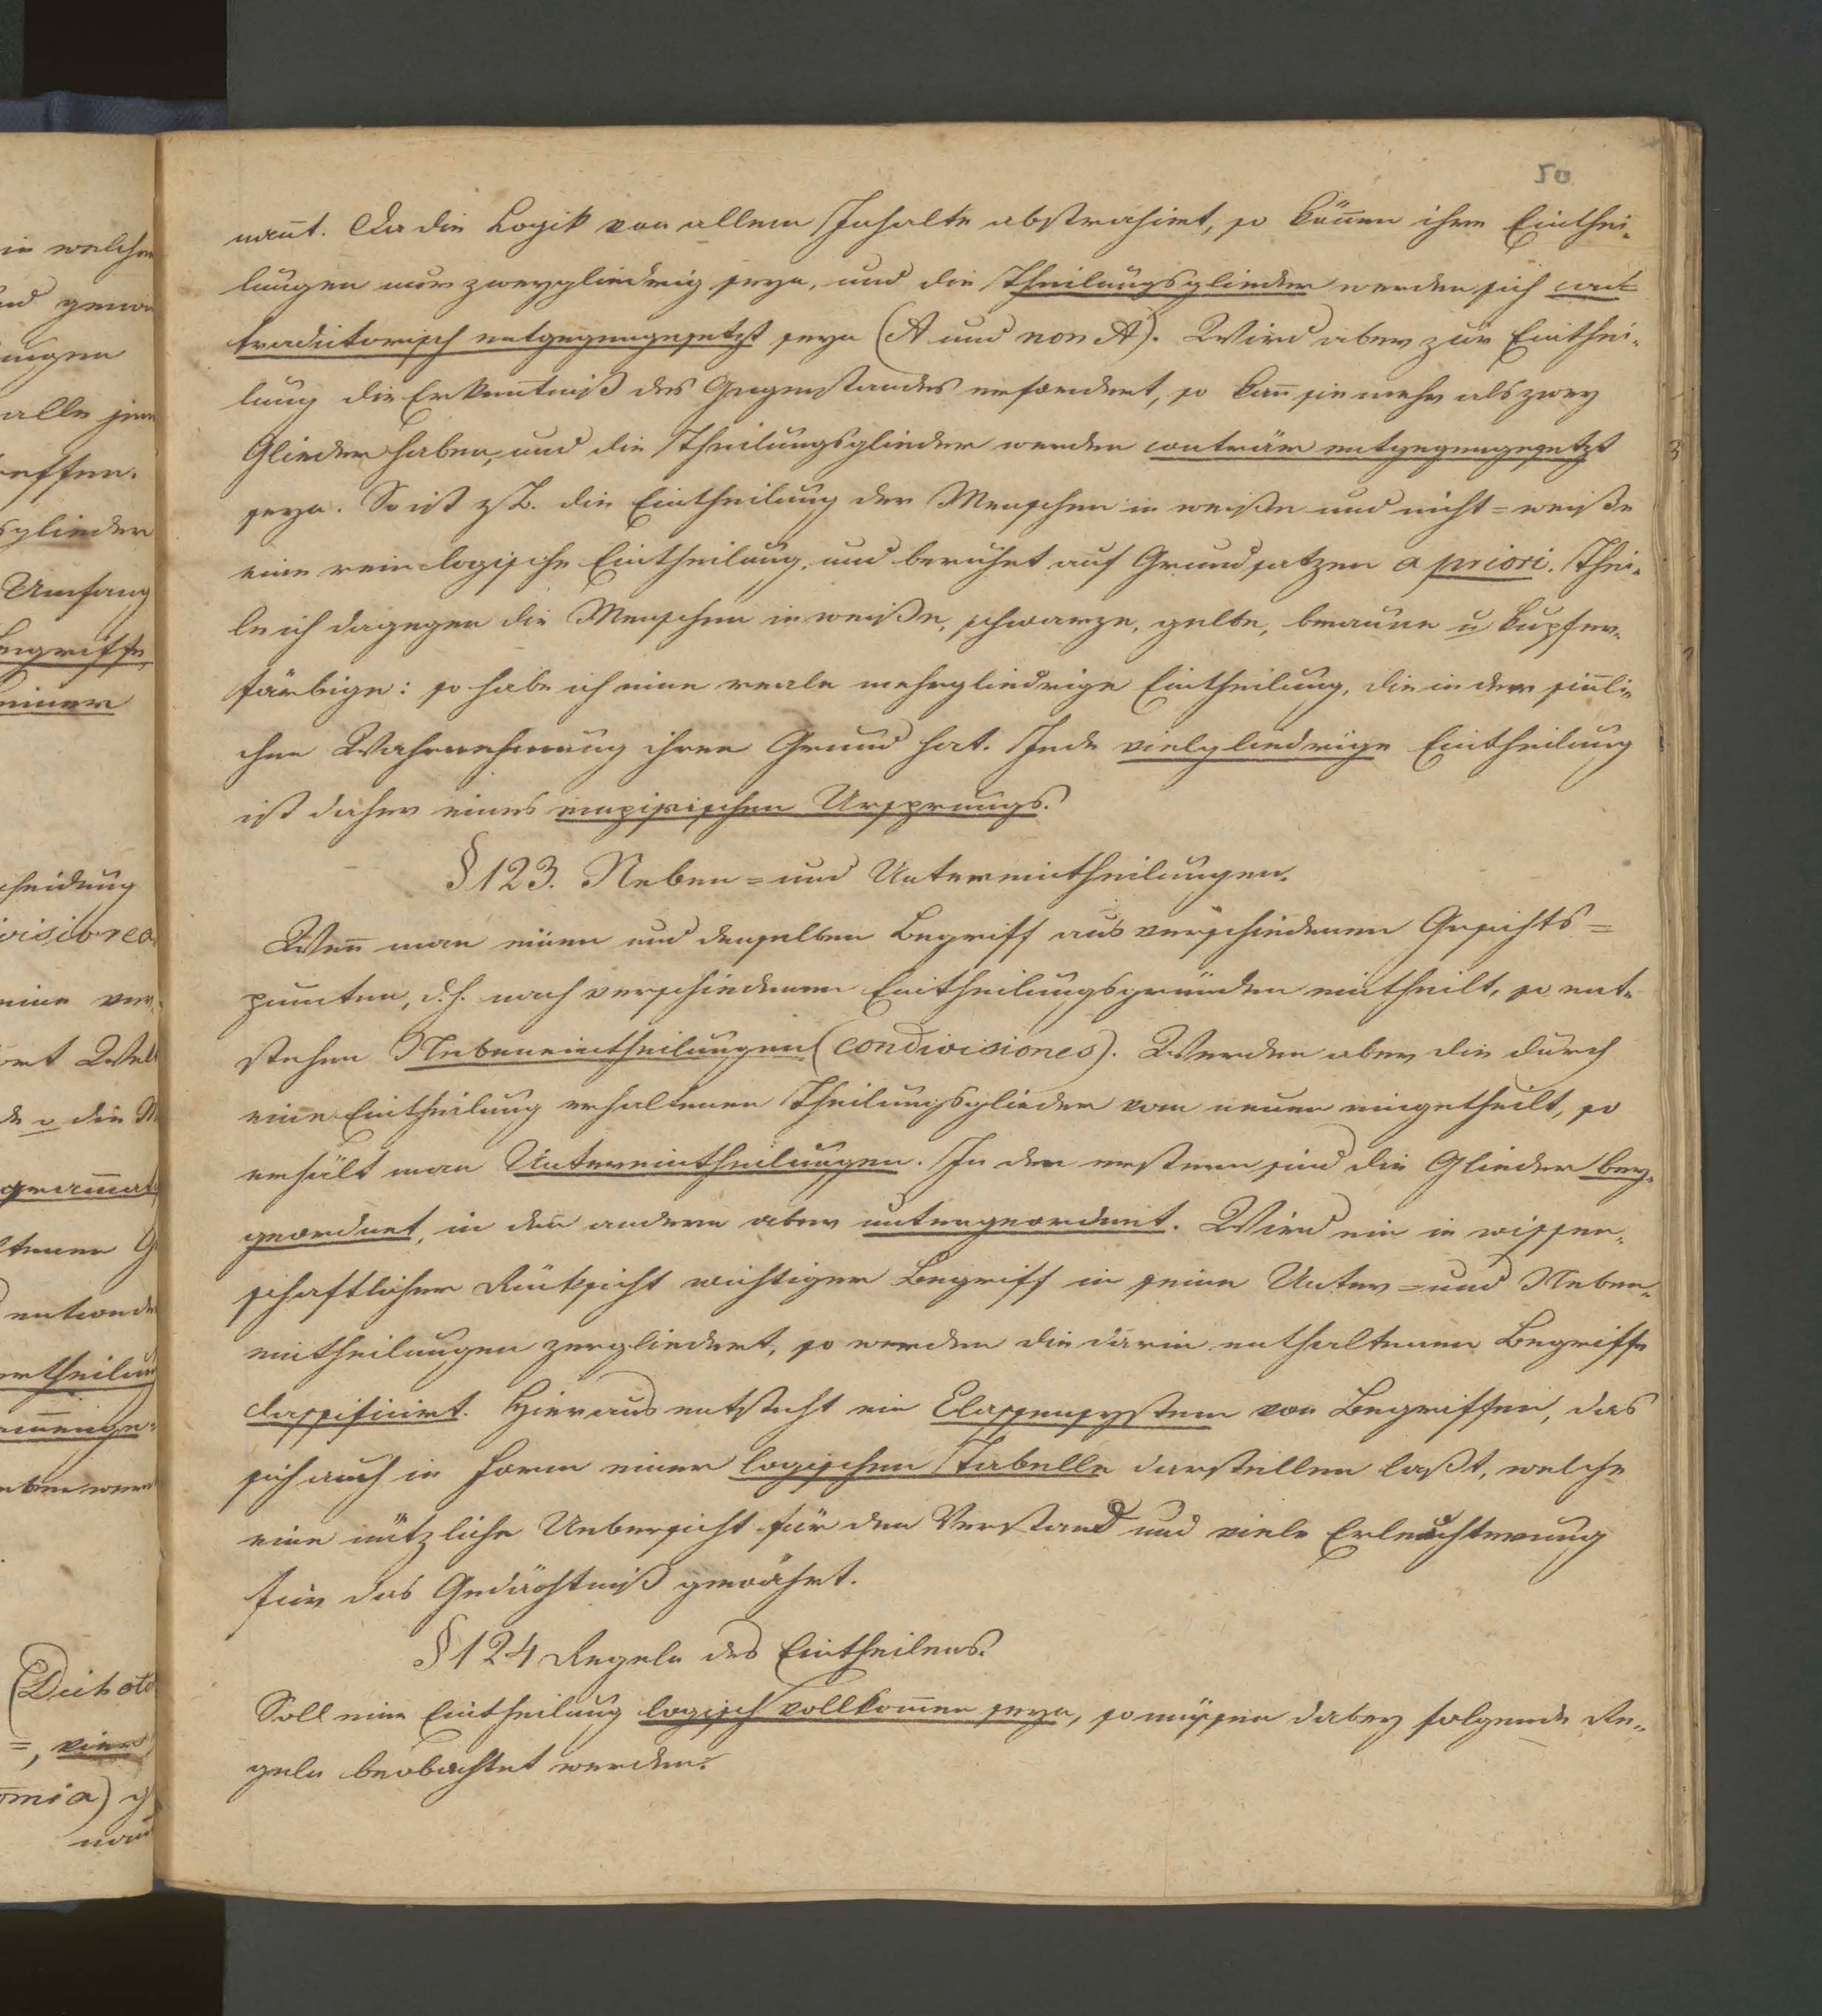 50
nan̄t. Da die Logik von allem Inhalte abstrahirt, so kön̄en ihre Einthei-
lungen nur zweygliedrig seyn, und die Theilungsglieder werden sich con=
tradictorisch entgegengesetzt seyn (A und non A). Wird aber zur Einthei-
lung die Erkenntniß des Gegenstandes erfordert, so kan̄ sie mehr als zwey
Glieder haben, und die Theilungsglieder werden conträr entgegengesetzt
seyn. So ist z.B. die Eintheilung der Menschen in weiße und nicht=weiße
eine rein logische Eintheilung, und beruhet auf Grundsatzen a priori. Thei-
le ich dagegen die Menschen in weiße, schwarze, gelbe, braune u kupfer-
färbige: so habe ich eine reale mehrgliedrige Eintheilung, die in der sin̄li-
chen Wahrnehmung ihren Grund hat. Jede vielgliedrige Eintheilung
ist daher eines empirischen Ursprungs.
§ 123. Neben= und Untereintheilungen.
Wen̄ man einen und denselben Begriff aus verschiedenen Gesichts=
puncten, d.h. nach verschiedenen Eintheilungsgründen eintheilt, so ent-
stehen Nebeneintheilungen (condivisiones). Werden aber die durch
eine Eintheilung erhaltenen Theilungsglieder von neuen eingetheilt, so
erhält man Untereintheilungen. In den erstern sind die Glieder bey-
geordnet, in den andern aber untergeordnet. Wird ein in wissen-
schaftlicher Rücksicht wichtiger Begriff in seine Unter= und Neben-
eintheilungen zergliedert, so werden die darin enthaltenen Begriffe
classificirt. Hieraus entsteht ein Classensystem von Begriffen, das
sich auch in Form einer logischen Tabelle darstellen laßt, welche
eine nützliche Uebersicht für den Verstand und viele Erleuchterung
für das Gedächtniß gewährt.
§ 124 Regeln des Eintheilens.
Soll eine Eintheilung logisch vollkom̄en seyn, so müssen dabey folgende Re-
geln beobachtet werden: